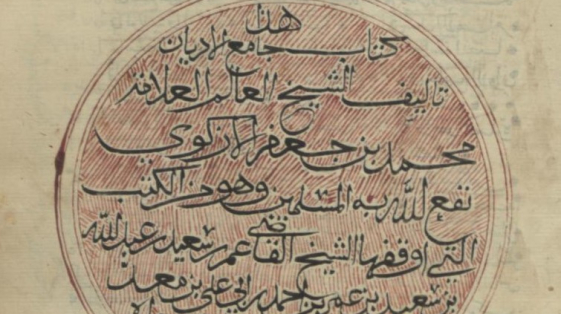 هذا
كتاب جامع الاديان
تاليف الشيخ العالم العلامة
محمد بن جعفر الازكوي
نفع الله به المسلمين وهو من الكتب
التي اوقفها الشيخ القاضي عمر بن سعيد بن عبد الله
بن سعيد بن عمر بن احمد بن ابي علي بن معد